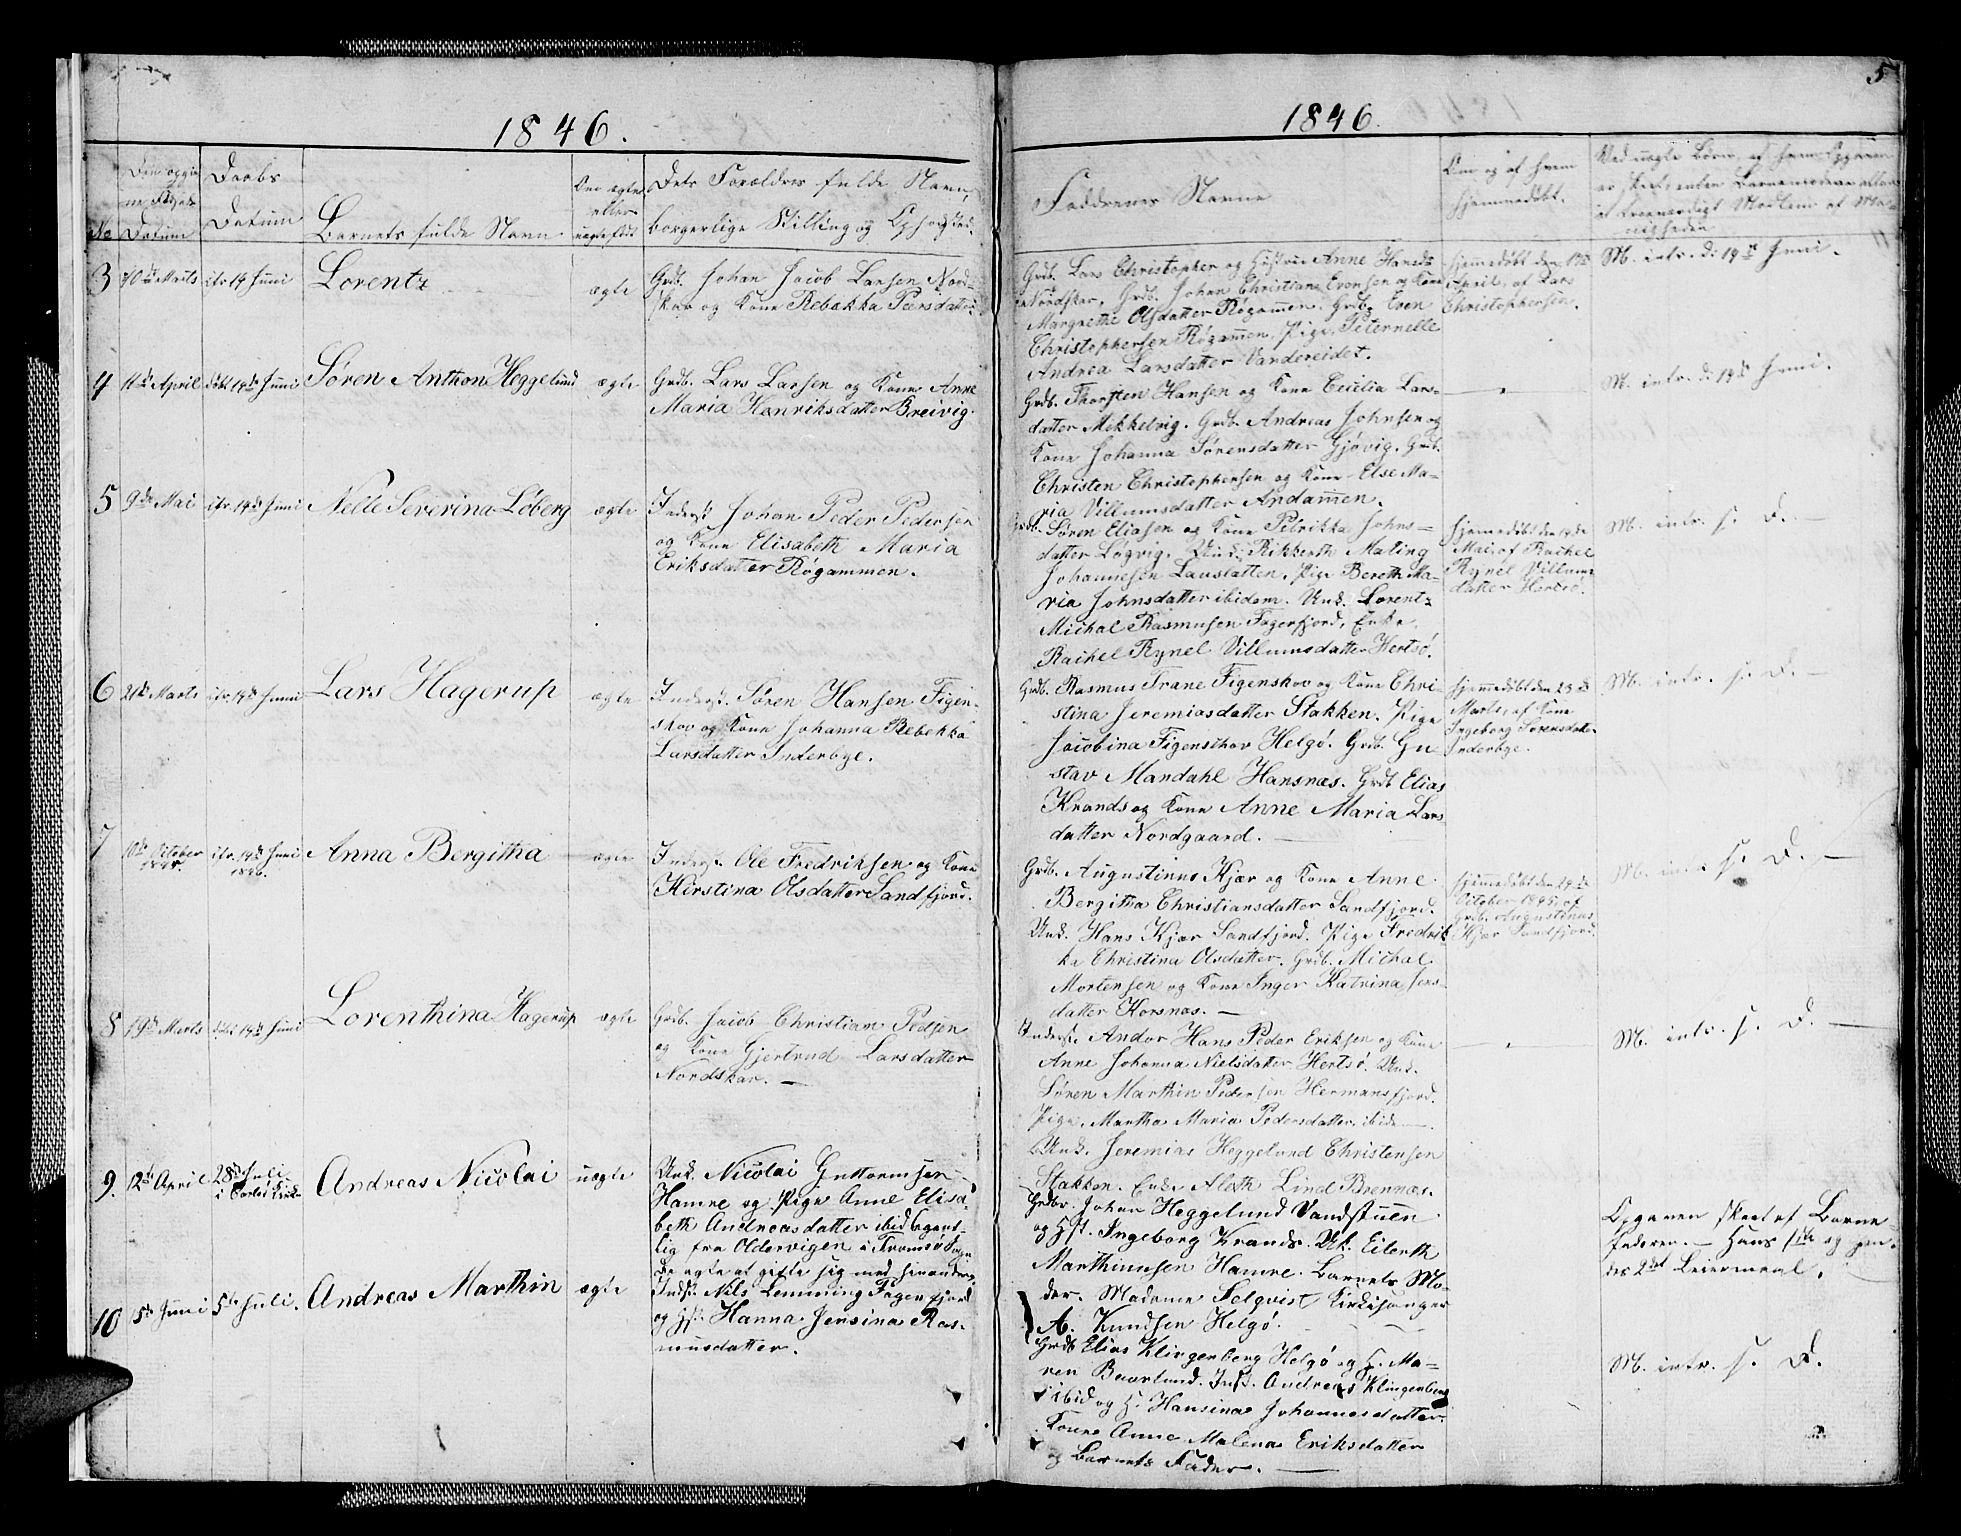 1846.
Den opgivne Fødsels Datum
Daabs Datum
No
Barnets fulde Navn
Om ægte eller uægtefødt
Dets Forældres fulde Navn,
borgerlige Stilling og Opholdsted.
3 20de Marts ibr. 19 Juni Lorentz ægte
Grdb. Johan Jacob Larsen Nord-
skar og Kone Rebekka Pedersdatter
4 11de April døbt 19de Juni Søren Anthon Heggelund ægte
Grdb. Lars Larsen og Kone Anne
Maria Henriksdatter Breivig.
5 9de Mai ibr. 19de Juni Nelle Severina Løberg ægte
Inderst Johan Peder Pedersen
og Kone Elisabeth Maria
Eriksdatter Røgammen.
6 21de Marts ibr. 19de Juni Lars Hagerup ægte
Inderst. Søren Hansen Figen-
skov og Kone Johanna Rebekka
Larsdatter Inderbye.
7 10de October ibr. 19de Juni 1846. Anna Bergitha ægte
Inderst. Ole Fredriksen og Kone
Kirstina Olsdatter Sandfjord.
8 19de Marts døbt 19de Juni Lorenthina Hagerup ægte
Grdb. Jacob Christian Pedersen
og Kone Gjertrud Larsdatter
Nordskar. —
9. 12de April 28de Juli i Carlsø Kirke Andreas Nicolai uægte
Unk. Nicolai Guttormsen
Hamre og Pige Anne Elisa-
beth Andreasdatter ibid egent-
lig fra Oldervigen i Tromsø Sogn
De agte at gifte sig med hinanden
10 5te Juni 5te Juli. Andreas Marthin ægte
Indst. Nils Lemming Fagerfjord
og Hst. Hanna Jensina Ras-
musdatter.
5
1846.
Faddrenes Navne
Om og af hvem
hjemmedøbt.
Ved uægte Børn, af hvem Opgaven
er skeet, enten Barnemoderen eller
et troværdigt Medlem af Me-
nigheden
Grdb. Lars Christopher og Hustrue Anne Hansd.
Nordskar. Grdb. Johan Christian Evensen og Kone
Margrethe Olsdatter Røgammen. Grdb. Even
Christophersen Røgammen. Pige Peternelle
Andrea Larsdatter Vandereidet.
hjemmedøbt den
April, af Lars
Christophersen.
M. intr. d: 19de Juni.
Grdb. Thorsten Hansen og Kone Cecilia Lars-
datter Mikkelvig. Grdb. Andreas Johnsen og
Kone Johanna Sørensdatter Gjøvig. Grdb.
Christen Christophersen og Kone Else Ma-
ria Villumsdatter Andammen.
M. intr. d: 19de Juni.
Grdb. Søren Eliasen og Kone Petrikka Johns-
datter Løgvig. Unk: Rikkerth Maling
Johannesen Lanslatten. Pige Bereth Ma-
ria Johnsdatter ibidem. Unk. Lorentz
Michal Rasmusen Fagerfjord, Enke
Rachel Rynel Villumsdatter Hertsø.
hjemmedøbt den
Mai, af Rachel
Rynel Villums-
datter Hertsø.
M. intr. s. D. —
Grdb. Rasmus Trane Figenskov og Kone Chri-
stina Jeremiasdatter Stakken. Pige
Jacobina Figenschov Helgø. Grdb. Gu-
stav Mandahl Hansnæs. Grdb Elias
Krands og Kone Anne Maria Lars
datter Nordgaard. —
hjemmedøbt den 23de
Marts, af Kone
Ingeborg Sørensdatter
Inderbye.
M. intr. s. D. —
Grdb. Augustinus Kjær og Kone Anne
Bergitha Christiansdatter Sandfjord.
Unk. Hans Kjær Sandfjord. Pige Fredrik-
ka Christina Olsdatter. Grdb. Michal
Mortensen og Kone Inger Katrina Jens-
datter Korsnæs. —
hjemmedøbt den 29de
October 1845, af
Grdb. Augustinus
Kjær Sandfjord.
M. intr. s. D. —
Inderst. Andor Hans Peder Eriksen og Kone
Anne Johanna Nielsdatter Hertsø. Unk.
Søren Marthin Pedersen Hermansfjord.
Pige, Martha Maria Pedersdatter, ibidem.
Unk. Jeremias Heggelund Christensen
Stakken. Enke Aleth Lind Brennæs.
M. intr. s. D. —
Grdbr. Johan Heggelund Vandstuen
og Hst. Ingeborg Krands. Uk. Eilerth
Marthinussen Hamre. Barnets Mo-
der. Madame Selqvist Kirkesanger
A. Knudsen Helgø.
Opgaven skeet af Barne-
faderen. — Hans 1ste og hen-
des 2det Leiermaal.
Grdb Elias Klingenberg Helgø og H. Ma-
ren Baarlund. Inst. Andreas Klingenberg
ibid og H. Hansina Johannesdatter
Kone Anne Malena Eriksdatter
og Barnets Fader. —
M. intr. s. D.